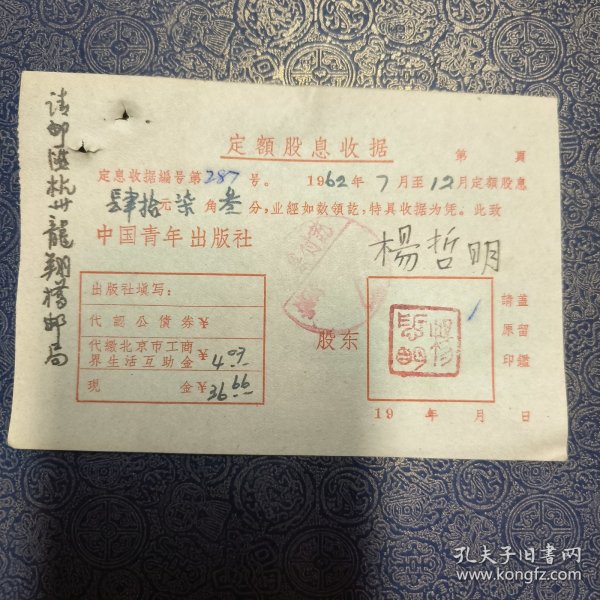 请邮汇杭州龍翔桥邮局
定額股息收据
第 頁
定息收据編号第287号。 1962年7月至12月定額股息
肆拾元柒角叁分,业經如数領訖,特具收据为凭。此致
中国青年出版社
楊哲明
出版社填写:
代認公債券¥
代繳北京市工商界生活互助金¥4.07
現金¥36.66
股东
請盖
原留
印鑑
19 年 月 日
孔夫子旧書网
www.kongfz.com